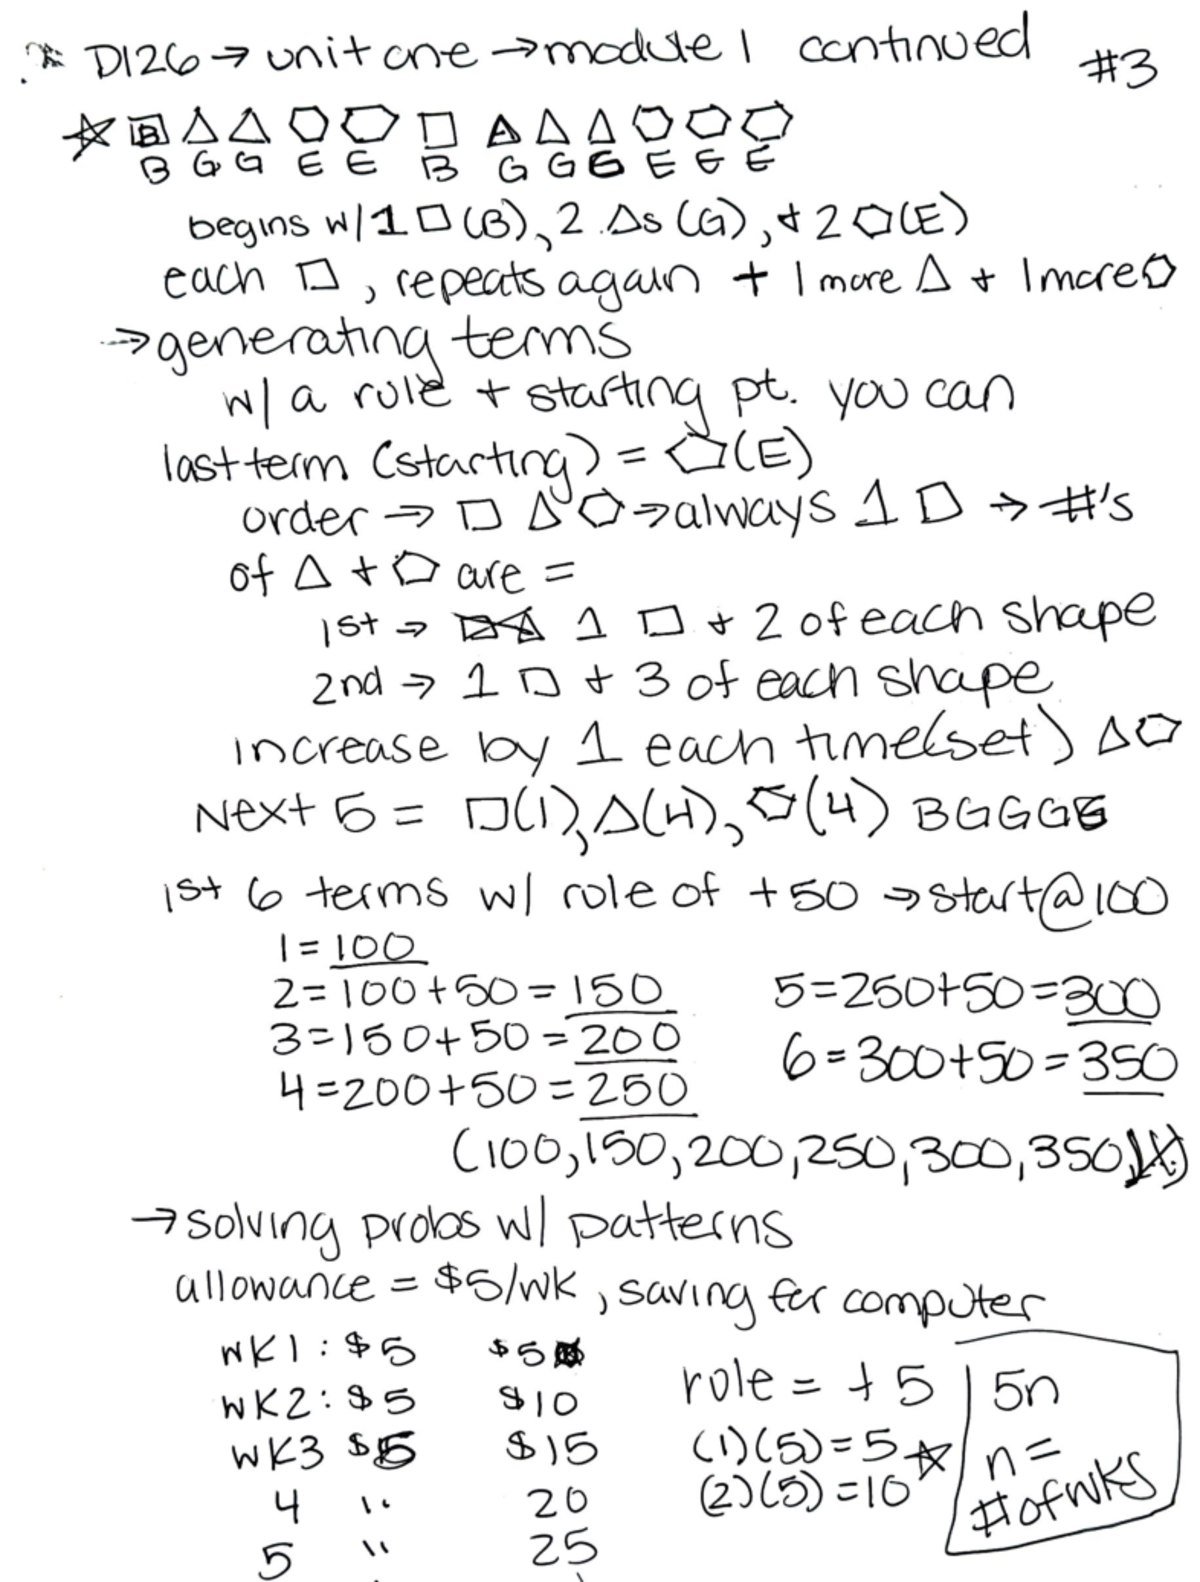 D126 → unit one → module 1 continued #3
☆ B △ △ ⬠ ⬠ □ △ △ △ ⬠ ⬠ ⬠
B G G E E B G G G E E E
begins w/ 1 □ (B), 2 △s (G), + 2 ⬠ (E)
each □, repeats again + 1 more △ + 1 more ⬠
→ generating terms
w/ a rule + starting pt. you can
last term (starting) = ⬠ (E)
order → □ △ ⬠ → always 1 □ → #'s
of △ + ⬠ are =
1st → 1 □ + 2 of each shape
2nd → 1 □ + 3 of each shape
increase by 1 each time (set) △ ⬠
Next 5 = □(1), △(4), ⬠(4) BGGGG
1st 6 terms w/ rule of +50 → start @ 100
1 = 100
2 = 100 + 50 = 150 5 = 250 + 50 = 300
3 = 150 + 50 = 200 6 = 300 + 50 = 350
4 = 200 + 50 = 250
(100, 150, 200, 250, 300, 350)
→ solving probs w/ patterns
allowance = $5/wk, saving for computer
WK1: $5 $5 rule = +5 5n
WK2: $5 $10 (1)(5) = 5 ☆ n =
WK3 $5 $15 (2)(5) = 10 # of wks
4 " 20
5 " 25